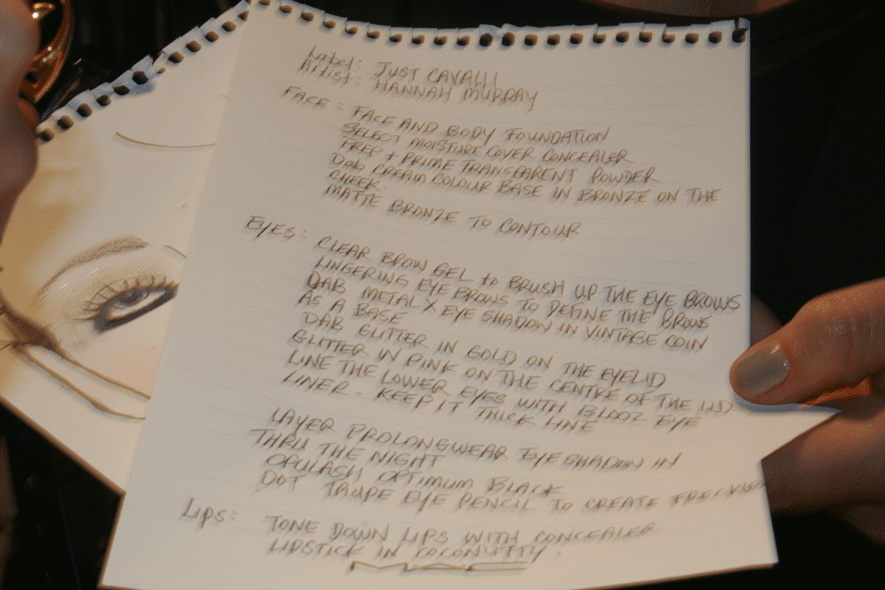 Label: JUST CAVALLI
Artist: HANNAH MURRAY
FACE: FACE AND BODY FOUNDATION
SELECT MOISTURE COVER CONCEALER
PREP + PRIME TRANSPARENT POWDER
Dab CREAM COLOUR BASE IN BRONZE ON THE
CHEEK.
MATTE BRONZE TO CONTOUR
EYES: CLEAR BROW GEL to BRUSH UP THE EYE BROWS
LINGERING EYE BROWS TO DEFINE THE BROWS
DAB METAL X EYE SHADOW IN VINTAGE COIN
AS A BASE
DAB GLITTER IN GOLD ON THE EYELID
GLITTER IN PINK ON THE CENTRE OF THE LID
LINE THE LOWER EYES WITH BLOOZ EYE
LINER. KEEP IT THICK LINE
LAYER PROLONGWEAR EYE SHADOW IN
THRU THE NIGHT
OPULASH OPTIMUM BLACK
DOT TAUPE EYE PENCIL TO CREATE
Lips: TONE DOWN LIPS WITH CONCEALER
LIPSTICK IN